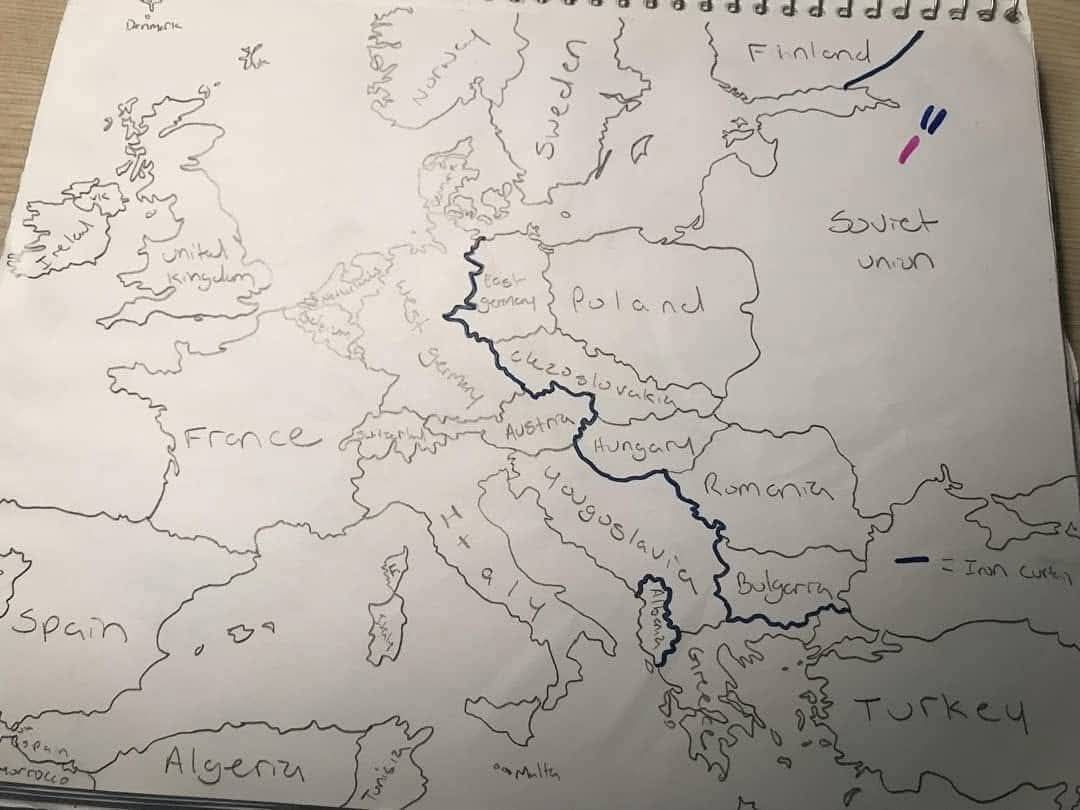 Denmark
Norway
Sweden
Finland
Ireland
UK
United
Kingdom
Netherlands
Belgium
West
Germany
East
germany
Poland
Soviet
union
Ckzoslovakia
France
Switzerland
Austria
Hungary
Romania
Yougoslavia
Italy
Bulgaria
= Iron curtain
Albania
Spain
Greece
Turkey
Spain
Morrocco
Algeria
Tunisia
Malta